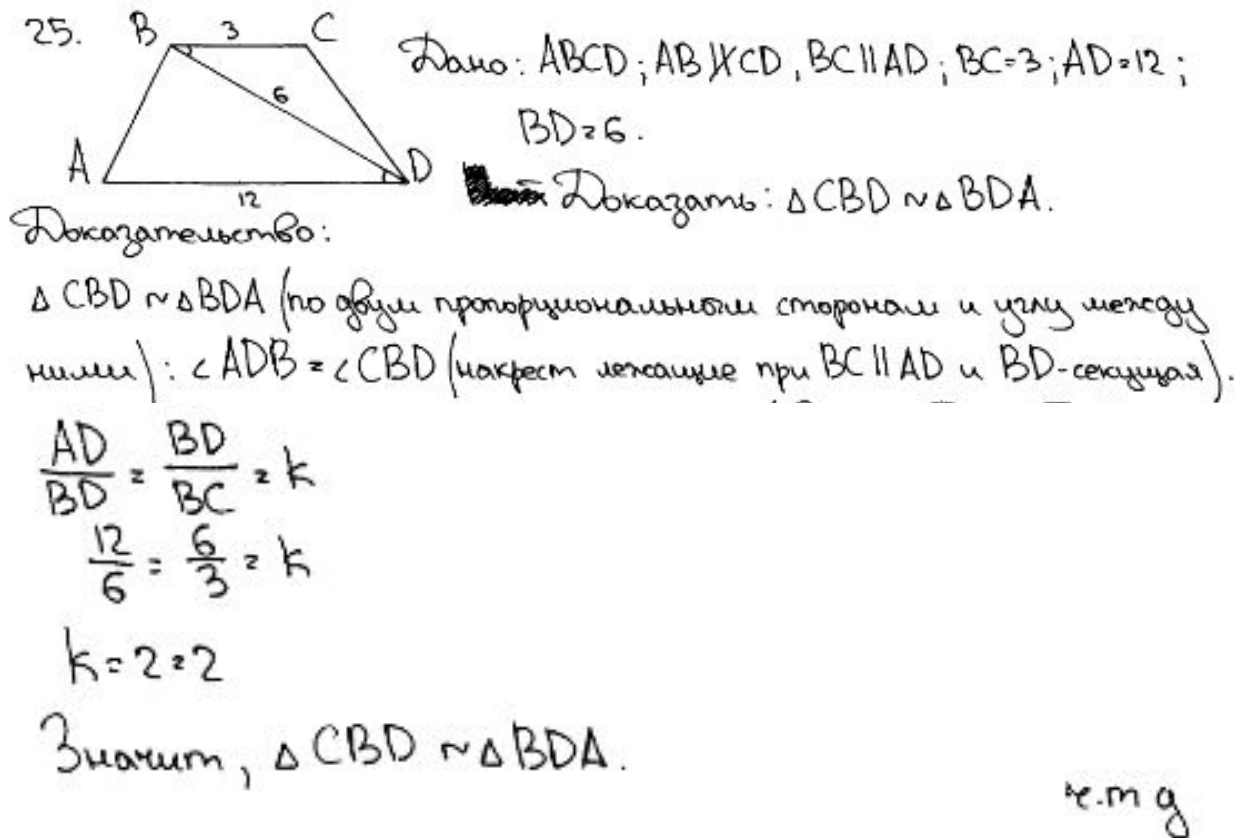 25.
B 3 C
6
A D
12
Дано: ABCD; AB ∦ CD, BC || AD; BC=3; AD=12;
BD=6.
Доказать: △CBD ~ △BDA.
Доказательство:
△ CBD ~ △BDA (по двум пропорциональным сторонам и углу между
ними): ∠ADB = ∠CBD (накрест лежащие при BC || AD и BD-секущая).
AD/BD = BD/BC = k
12/6 = 6/3 = k
k=2=2
Значит, △ CBD ~ △ BDA.
ч.т д